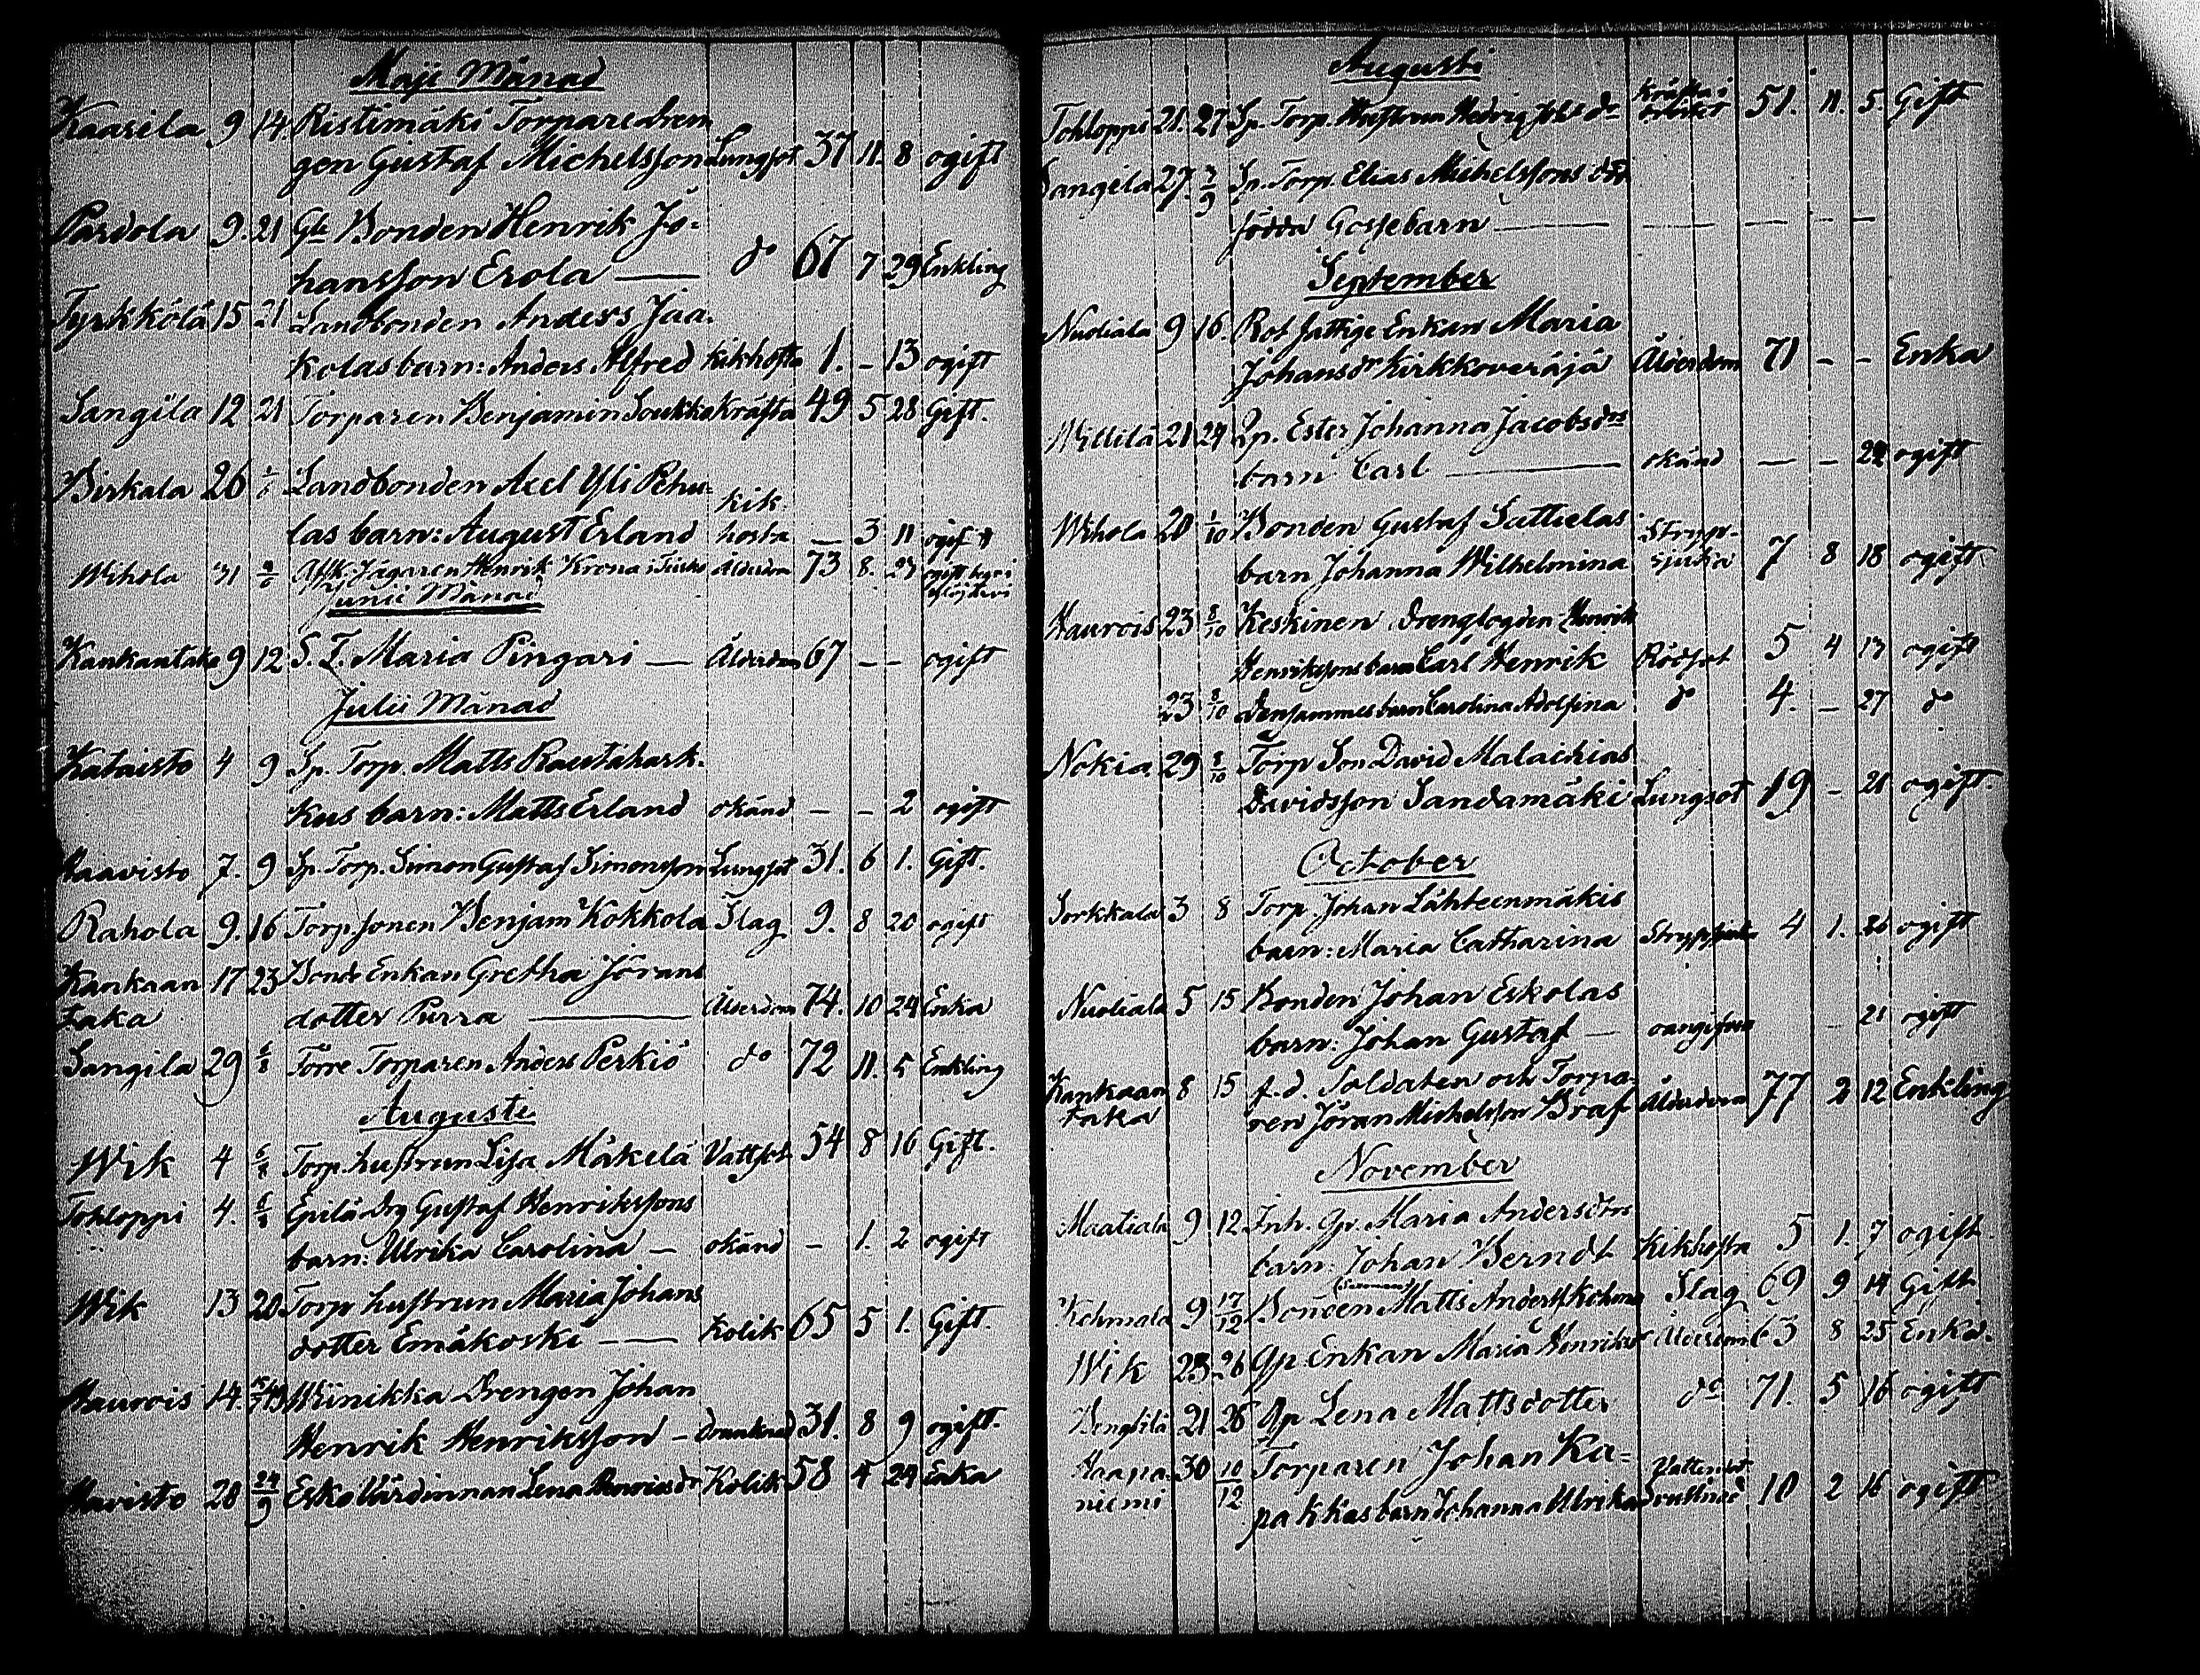 Maji Månad
Kaarila 9 14 Ristimäki Torpare Dren
gen Gustaf Michelsson Lungsot 37 11. 8 ogift
Pardola 9. 21 Gle Bonden Henrik Jo=
hansson Erola — do 67 7 29 Enkling
Tyrkkölä 15 21 Landbonden Anders Jaa.
kolas barn: Anders Alfred kikhosta 1. - 13 ogift
Sangila 12 21 Torparen Benjamin Soukko kräfta 49 5 28 Gift.
Birkala 26 1/6 Landbonden Axel Yli Pehu= kik
las barn: August Erland hosta — 3 11 ogift
Wihola 31 Afsk. Jägaren Henrik Krona Ålderdom 73 8. 23
Junii Månad
Kankantaka 9 12 S. I. Maria Pingari — Ålderdom 67 - - ogift
Julii Månad
Kataisto 4 9 Sp. Torp. Matts Rautahark.
kus barn: Matts Erland okänd - - 2 ogift
Haavisto 7. 9 Sp. Torp. Simon Gustaf Simonsson Lungsot 31. 6 1. Gift.
Rahola 9. 16 Torp. sonen Benjam Kokkola Slag 9. 8 20 ogift
Kankaan 17 23 Bonde Enkan Gretha Jörans
taka dotter Purra — Ålderdom 74. 10 24 Enka
Sangila 29 6/8 Förre Torparen Anders Perkiö do 72 11. 5 Enkling
Augusti
Wik 4 Torp. hustrun Lisa Mäkelä Vattsot 54 8 16 Gift.
Tohloppi 4. Epilä Drg Gustaf Henrikssons
barn: Ulrika Carolina — okänd - 1. 2 ogift
Wik 13 20 Torp hustrun Maria Johans
dotter Emäkoski — Kolik 65 5 1. Gift.
Haurois 14. Winikka Drengen Johan
Henrik Henriksson - drunknad 31. 8 9 ogift.
Havisto 28 24/9 Esko Värdinnan Lena Kolik 58 4 24 Enka
Augusti
Tohloppi 21. 27 Sp. Torp. Hustrun Hedvig Kräfta i 51. 11. 5. Gift
Sangila 27. 3/9 Sp. Torp. Elias Michelssons död
födda Gossebarn — — — — —
September
Nuoliala 9 16. Rot fattige Enkan Maria
Johansdr Kirkkoveräjä Ålderdom 71 - - Enka
Willilä 21 24 Sp. Ester Johanna Jacobsdrs
barn Carl — okänd — - 22 ogift
Wihola 20 1/10 Bonden Gustaf Sattielas Stryp-
barn Johanna Wilhelmina sjuka 7 8 18 ogift
Haurois 23 8/10 Keskinen Drenglogden Henrik
Henrikssons barn Carl Henrik Rödsot 5 4 13 ogift
23 8/10 Densammes barn Carolina Adolfina do 4. - 27 do
Nokia 29 8/10 Torp Son David Malachias
Davidsson Sandamäki Lungsot 19 - 21 ogift.
October
Sorkkala 3 8 Torp. Johan Lähteenmäkis
barn: Maria Catharina Strypsjuka 4 1. 26 ogift
Nuoliala 5 15 Bonden Johan Eskolas
barn: Johan Gustaf — oangifven - 21 ogift
Kankaan 8 15 f.d. Soldaten och Torpa-
taka ren Jöran Michelsson Braf Ålderdom 77 2 12 Enkling
November
Maatiala 9 12. Inh. Gp. Maria Andersdrs
barn: Johan Berndt Kikhosta 5 1. 7 ogift
Kehmala 9 17/12 Bonden Matts Anderss Slag 69 9 14 Gift
Wik 23 26 Gp Enkan Maria Henriksdr Ålderdom 63 8 25 Enka.
Bengtilä 21 26 Gp Lena Mattsdotter do 71. 5 16 ogift
Haapa- 30 10/12 Torparen Johan Ka=
niemi pakkas barn Johanna Ulrika drunknad 10 2 16 ogift